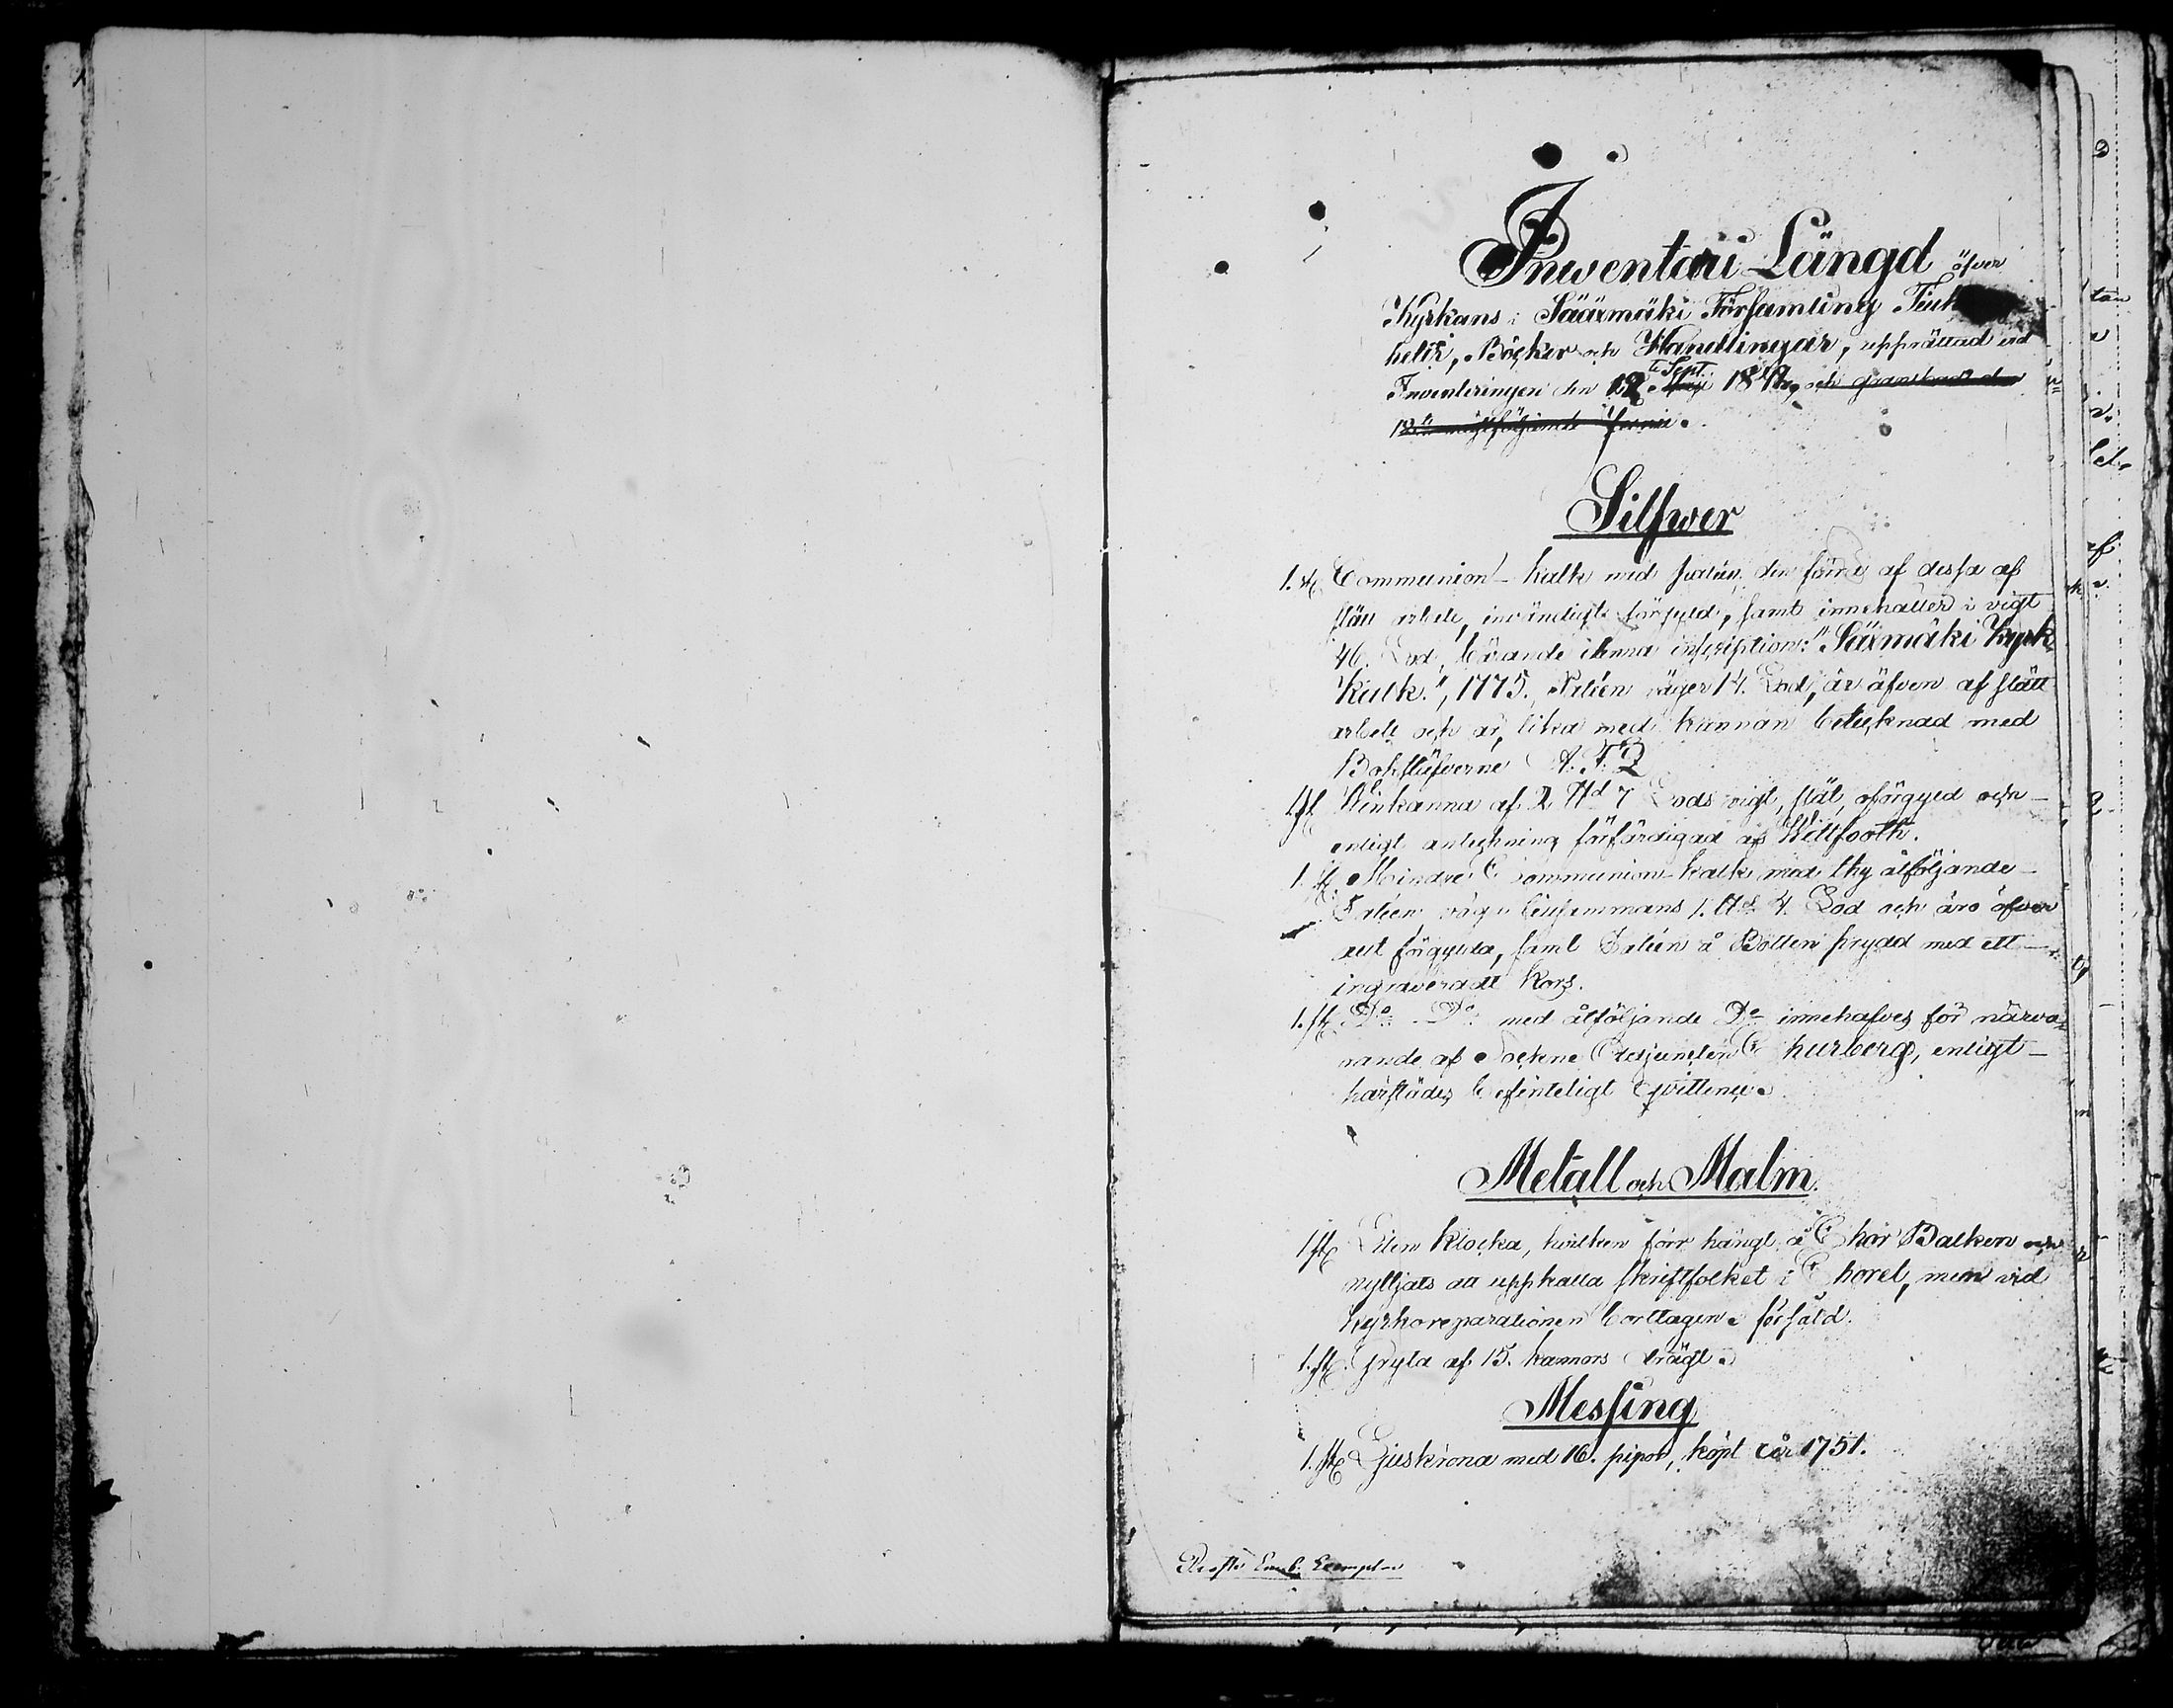 Inventarii Längd öfver
Kyrkans i Säärmäki Församling
heter, Böcker och Handlingar, upprättad vid
Inventeringen den 12 te Sept. 18 och granskad den
18 nästföljande Junii.
Silfwer
1. st. Communion-Kalk med Patén, den förra af dessa af
slätt arbete, invändigt förgyld, samt innehåller i vigt
46. Lod, bärande denna inscription: "Säxmäki Kyrk
Kalk.", 1775. Patén väger 14. Lod, är äfven af slätt
arbete och är, lika med kannan betecknad med
Bokstäfverne A. F. Q
1 st Winkanna af 2 ℔d 7 Lods vigt, slät, oförgyld och
enligt anteckning förfärdigad af Wittfooth.
1. st. Mindre Communion-Kalk med thy åtföljande
Patéen väga tilsammans 1. ℔d 4. Lod och äro öfver
alt förgylda, samt Patéen å Botten prydd med ett
ingraveradt Kors.
1. st. Do Do med åtföljande Do innehafves för närva-
rande af Sockne Adjuncten Churberg, enligt
härstädes befinteligt Qvittence.
Metall och Malm.
1 st Liten Klocka, hvilken förr hängt å Chor Balken och
nyttjats att uppkalla skriftfolket i Choret, men vid
kyrkoreparationen borttagen. försåld.
1. st. Gryta af 15. kannors drägt.
Messing
1. st Ljuskrona med 16. pipor, köpt år 1751.